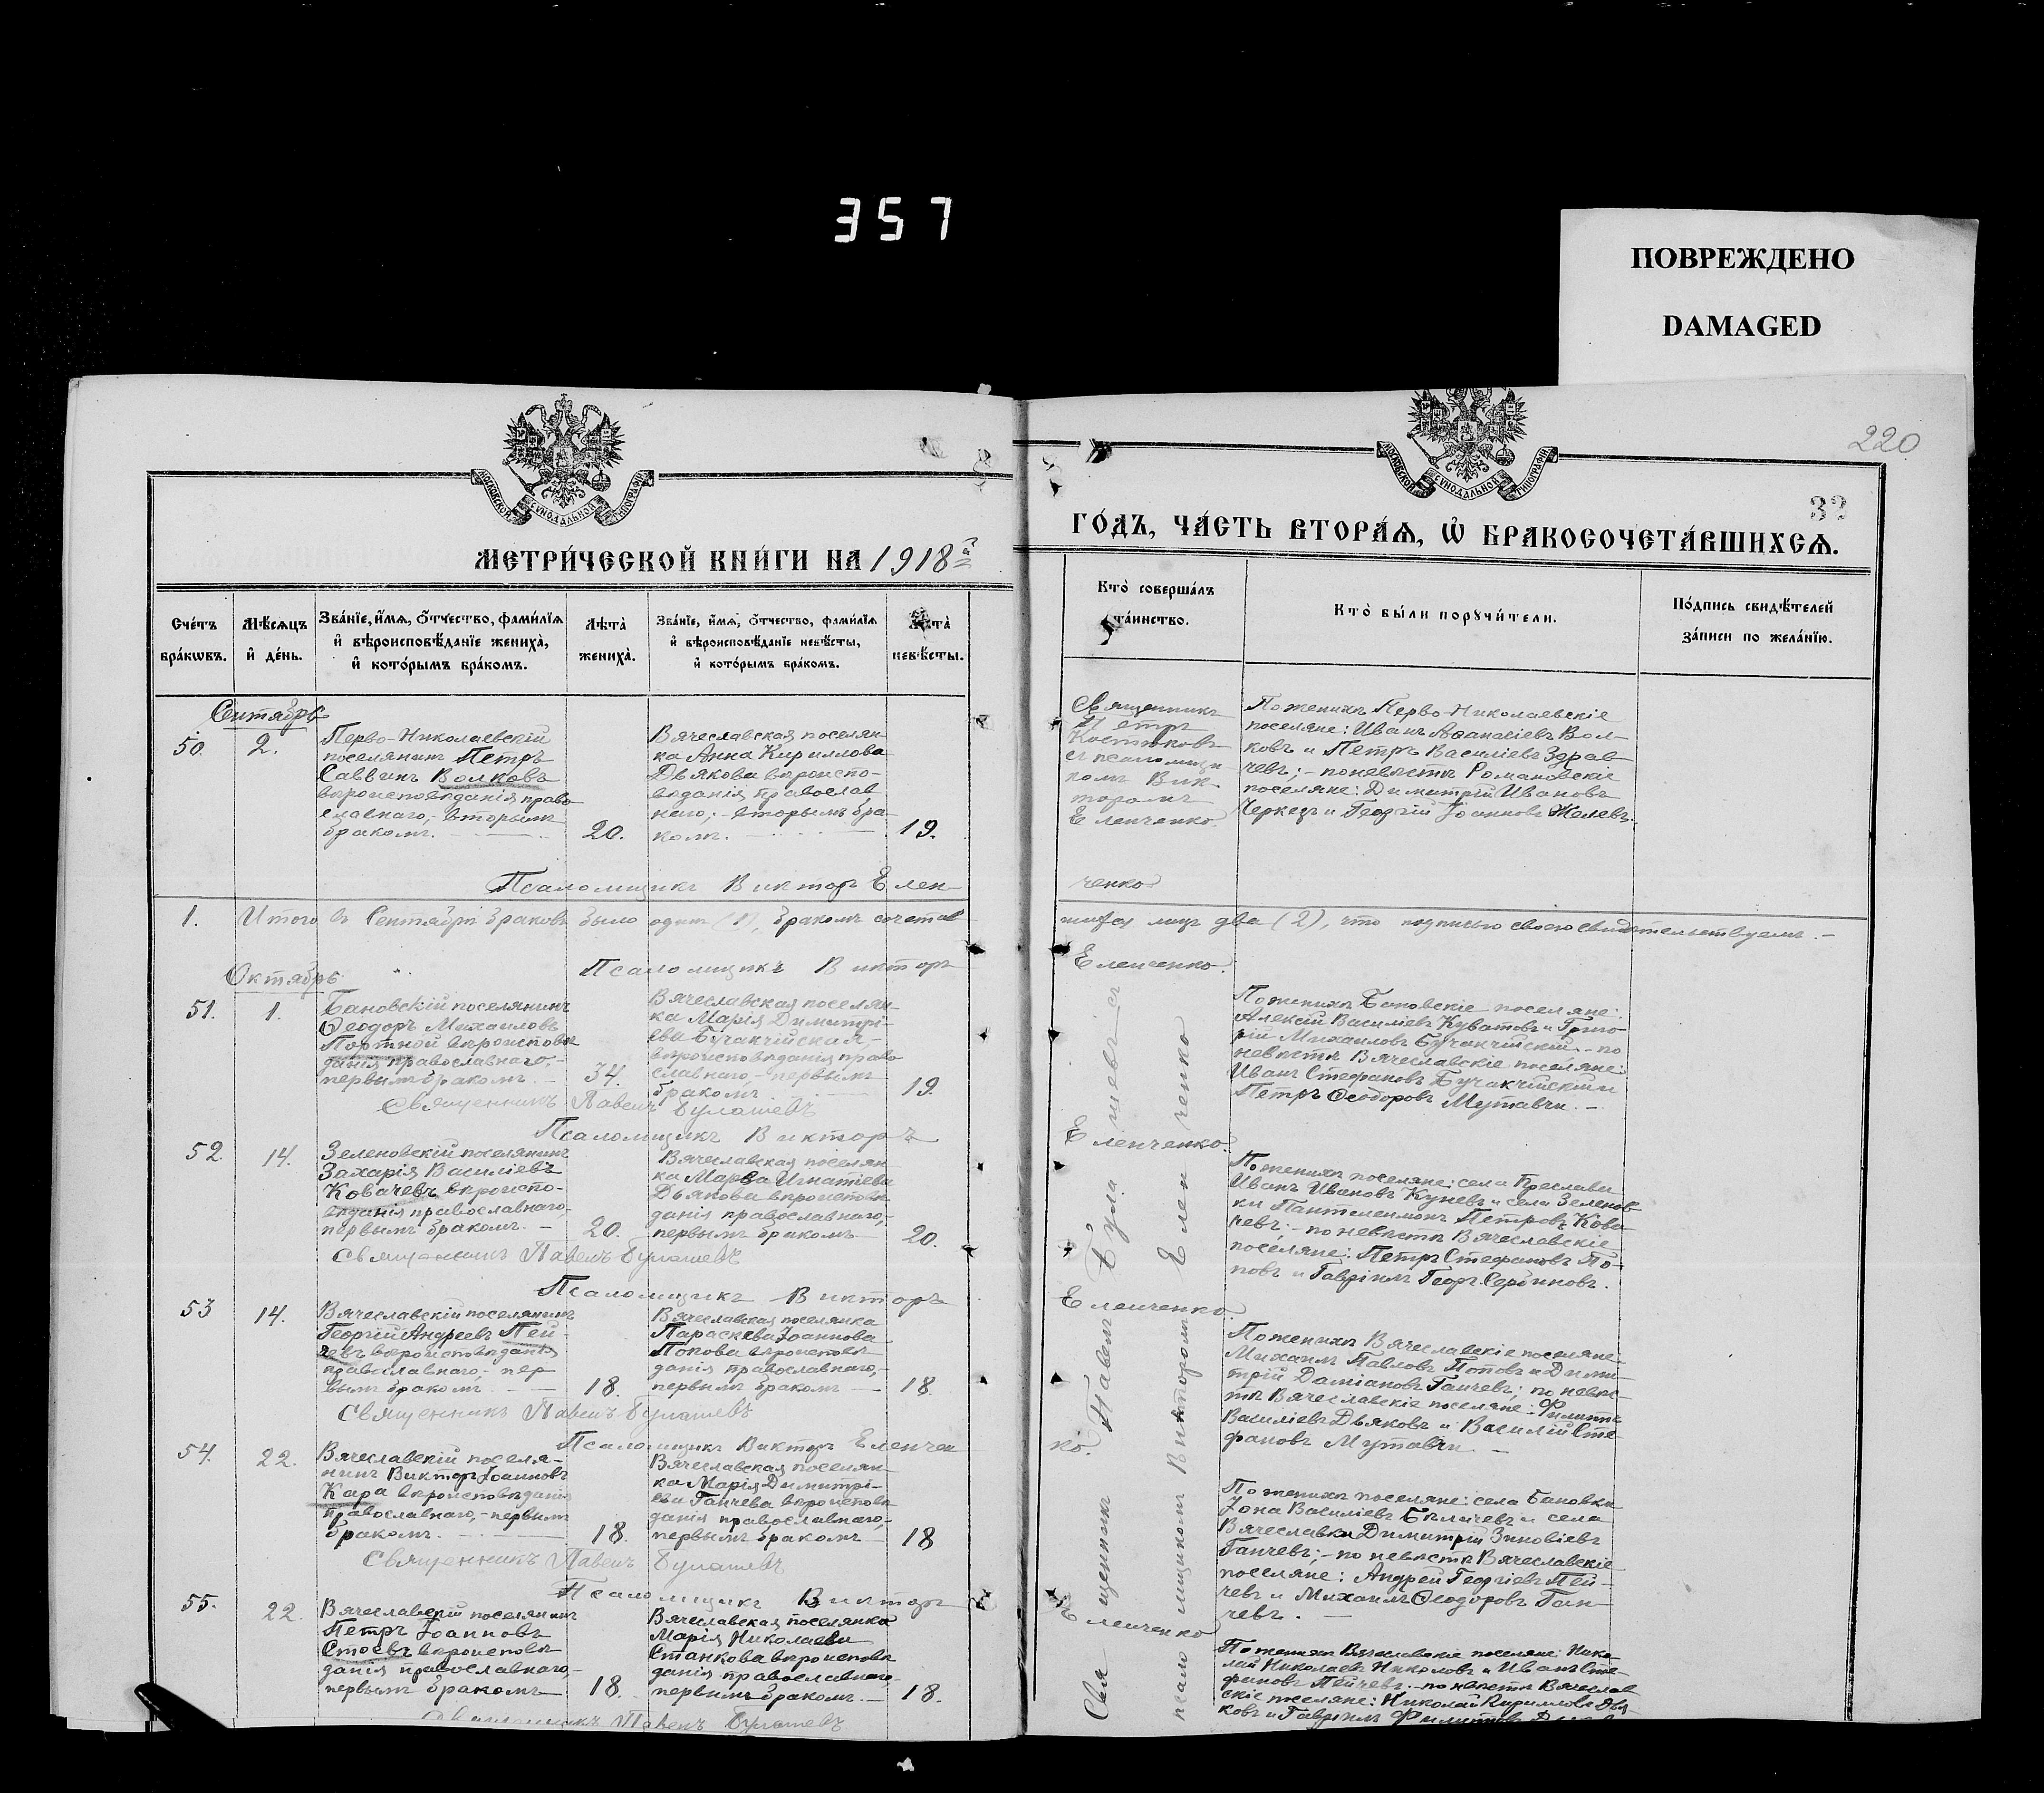 357
ПОВРЕЖДЕНО
DAMAGED
220
32
МОСКОВСКОЙ СѴНОДАЛЬНОЙ ТИПОГРАФІИ
МОСКОВСКОЙ СѴНОДАЛЬНОЙ ТИПОГРАФІИ
МЕТРИ́ЧЕСКОЙ КНИ́ГИ НА 1918 й
ГО́ДЪ, ЧА́СТЬ ВТОРА́Ѧ, Ѽ БРАКОСОЧЕТА́ВШИХСѦ.
Сче́тъ бра́кѡвъ.
Мѣ́сѧцъ и҆ де́нь.
Зва́нїе, и҆́мѧ, ѻ҆́тчество, фами́лїѧ
и҆ вѣроисповѣ́данїе жениха̀,
и҆ кото́рымъ бра́комъ.
Лѣта̀ жениха̀.
Зва́нїе, и҆́мѧ, ѻ҆́тчество, фами́лїѧ
и҆ вѣроисповѣ́данїе невѣ́сты,
и҆ кото́рымъ бра́комъ.
Лѣта̀ невѣ́сты.
Кто̀ соверша́лъ
та́инство.
Кто̀ бы́ли порꙋчи́тели.
По́дпись свидѣ́телей
за́писи по жела́нїю.
Сентябрь
50.
2.
Перво-Николаевскій
поселянинъ Петръ
Саввинъ Волковъ
вѣроисповѣданія право
славнаго, - вторымъ
бракомъ.
20.
Вячеславская поселян-
ка Анна Кириллова
Дьякова вѣроиспо-
вѣданія православ
наго; - вторымъ бра-
комъ.
19.
Священникъ
Петръ
Костюковъ
съ псаломщи
комъ Вик-
торомъ
Еленченко.
По женихѣ Перво-Николаевскіе
поселяне: Иванъ Аѳанасіевъ Вол-
ковъ и Петръ Василіевъ Здрав-
чевъ; - по невѣстѣ Романовскіе
поселяне: Димитрій Ивановъ
Черкезъ и Георгій Іоанновъ Желевъ.
Псаломщикъ Викторъ Елен
ченко
1. Итого въ Сентябрѣ браковъ было одинъ (1), бракомъ сочетав
шихся лицъ два (2), что подписью своею свидѣтельствуемъ. -
Псаломщикъ Викторъ
Еленченко.
Октябрь
51.
1.
Бановскій поселянинъ
Ѳеодоръ Михаиловъ
Портной вѣроисповѣ
данія православнаго, -
первымъ бракомъ.
34.
Вячеславская поселян-
ка Марія Димитрі-
ева Бучакчійская -
вѣроисповѣданія право
славнаго, - первымъ
бракомъ.
19.
По женихѣ Бановскіе поселяне:
Алексій Василіевъ Куватовъ и Григо-
рій Михаиловъ Бучакчійскій. - по
невѣстѣ Вячеславскіе поселяне:
Иванъ Стефановъ Бучакчійскій и
Петръ Ѳеодоровъ Мутавчи. -
Священникъ Павелъ Булашевъ
Псаломщикъ Викторъ
Еленченко.
52.
14.
Зеленовскій поселянинъ
Захарія Василіевъ
Ковачевъ вѣроиспо-
вѣданія православнаго,
первымъ бракомъ. -
20.
Вячеславская поселян
ка Марѳа Игнатіева
Дьякова вѣроисповѣ
данія православнаго, -
первымъ бракомъ
20.
По женихѣ поселяне: села Преслава
Иванъ Ивановъ Куневъ и села Зеленов
ки Пантелеимонъ Петровъ Кова
чевъ; - по невѣстѣ Вячеславскіе
поселяне: Петръ Стефановъ По-
повъ и Гавріилъ Георг. Сербиновъ.
Священникъ Павелъ Булашевъ
Псаломщикъ Викторъ
Еленченко
53
14.
Вячеславскій поселянинъ
Георгій Андреевъ Пей-
чевъ вѣроисповѣданія
православнаго, - пер
вымъ бракомъ.
18.
Вячеславская поселянка
Параскева Іоаннова
Попова вѣроисповѣ
данія православнаго, -
первымъ бракомъ -
18.
По женихѣ Вячеславскіе поселяне:
Михаилъ Павловъ Поповъ и Дими-
трій Даміановъ Ганчевъ; по невѣс-
тѣ Вячеславскіе поселяне: Филиппъ
Василіевъ Дьяковъ и Василій Сте
фановъ Мутавчи. -
Священникъ Павелъ Булашевъ
Псаломщикъ Викторъ Еленчен
ко.
54.
22.
Вячеславскій поселя-
нинъ Викторъ Іоанновъ
Кара вѣроисповѣданія
православнаго, - первымъ
бракомъ.
18.
Вячеславская поселян-
ка Марія Димитрі-
ева Ганчева вѣроисповѣ
данія православнаго, -
первымъ бракомъ
18
По женихѣ поселяне: села Бановки
Іона Василіевъ Бѣличевъ и села
Вячеславки Димитрій Зиновіевъ
Ганчевъ; - по невѣстѣ Вячеславскіе
поселяне: Андрей Георгіевъ Пей-
чевъ и Михаилъ Ѳеодоровъ Ган-
чевъ. -
Священникъ Павелъ Булашевъ
Псаломщикъ Викторъ
Еленченко
55.
22.
Вячеславскій поселянинъ
Петръ Іоанновъ
Стоевъ вѣроисповѣ
данія православнаго, -
первымъ бракомъ
18.
Вячеславская поселянка
Марія Николаева
Станкова вѣроисповѣ
данія православнаго,
первымъ бракомъ. -
18.
По женихѣ Вячеславскіе поселяне: Нико-
лай Николаевъ Николовъ и Иванъ Сте-
фановъ Пейчевъ. - по невѣстѣ Вячеслав
скіе поселяне: Николай Кирилловъ Дья
ковъ и Гавріилъ Филипповъ
Священникъ Павелъ Булашевъ
Священникъ Павелъ Булашевъ съ
псаломщикомъ Викторомъ Еленченко